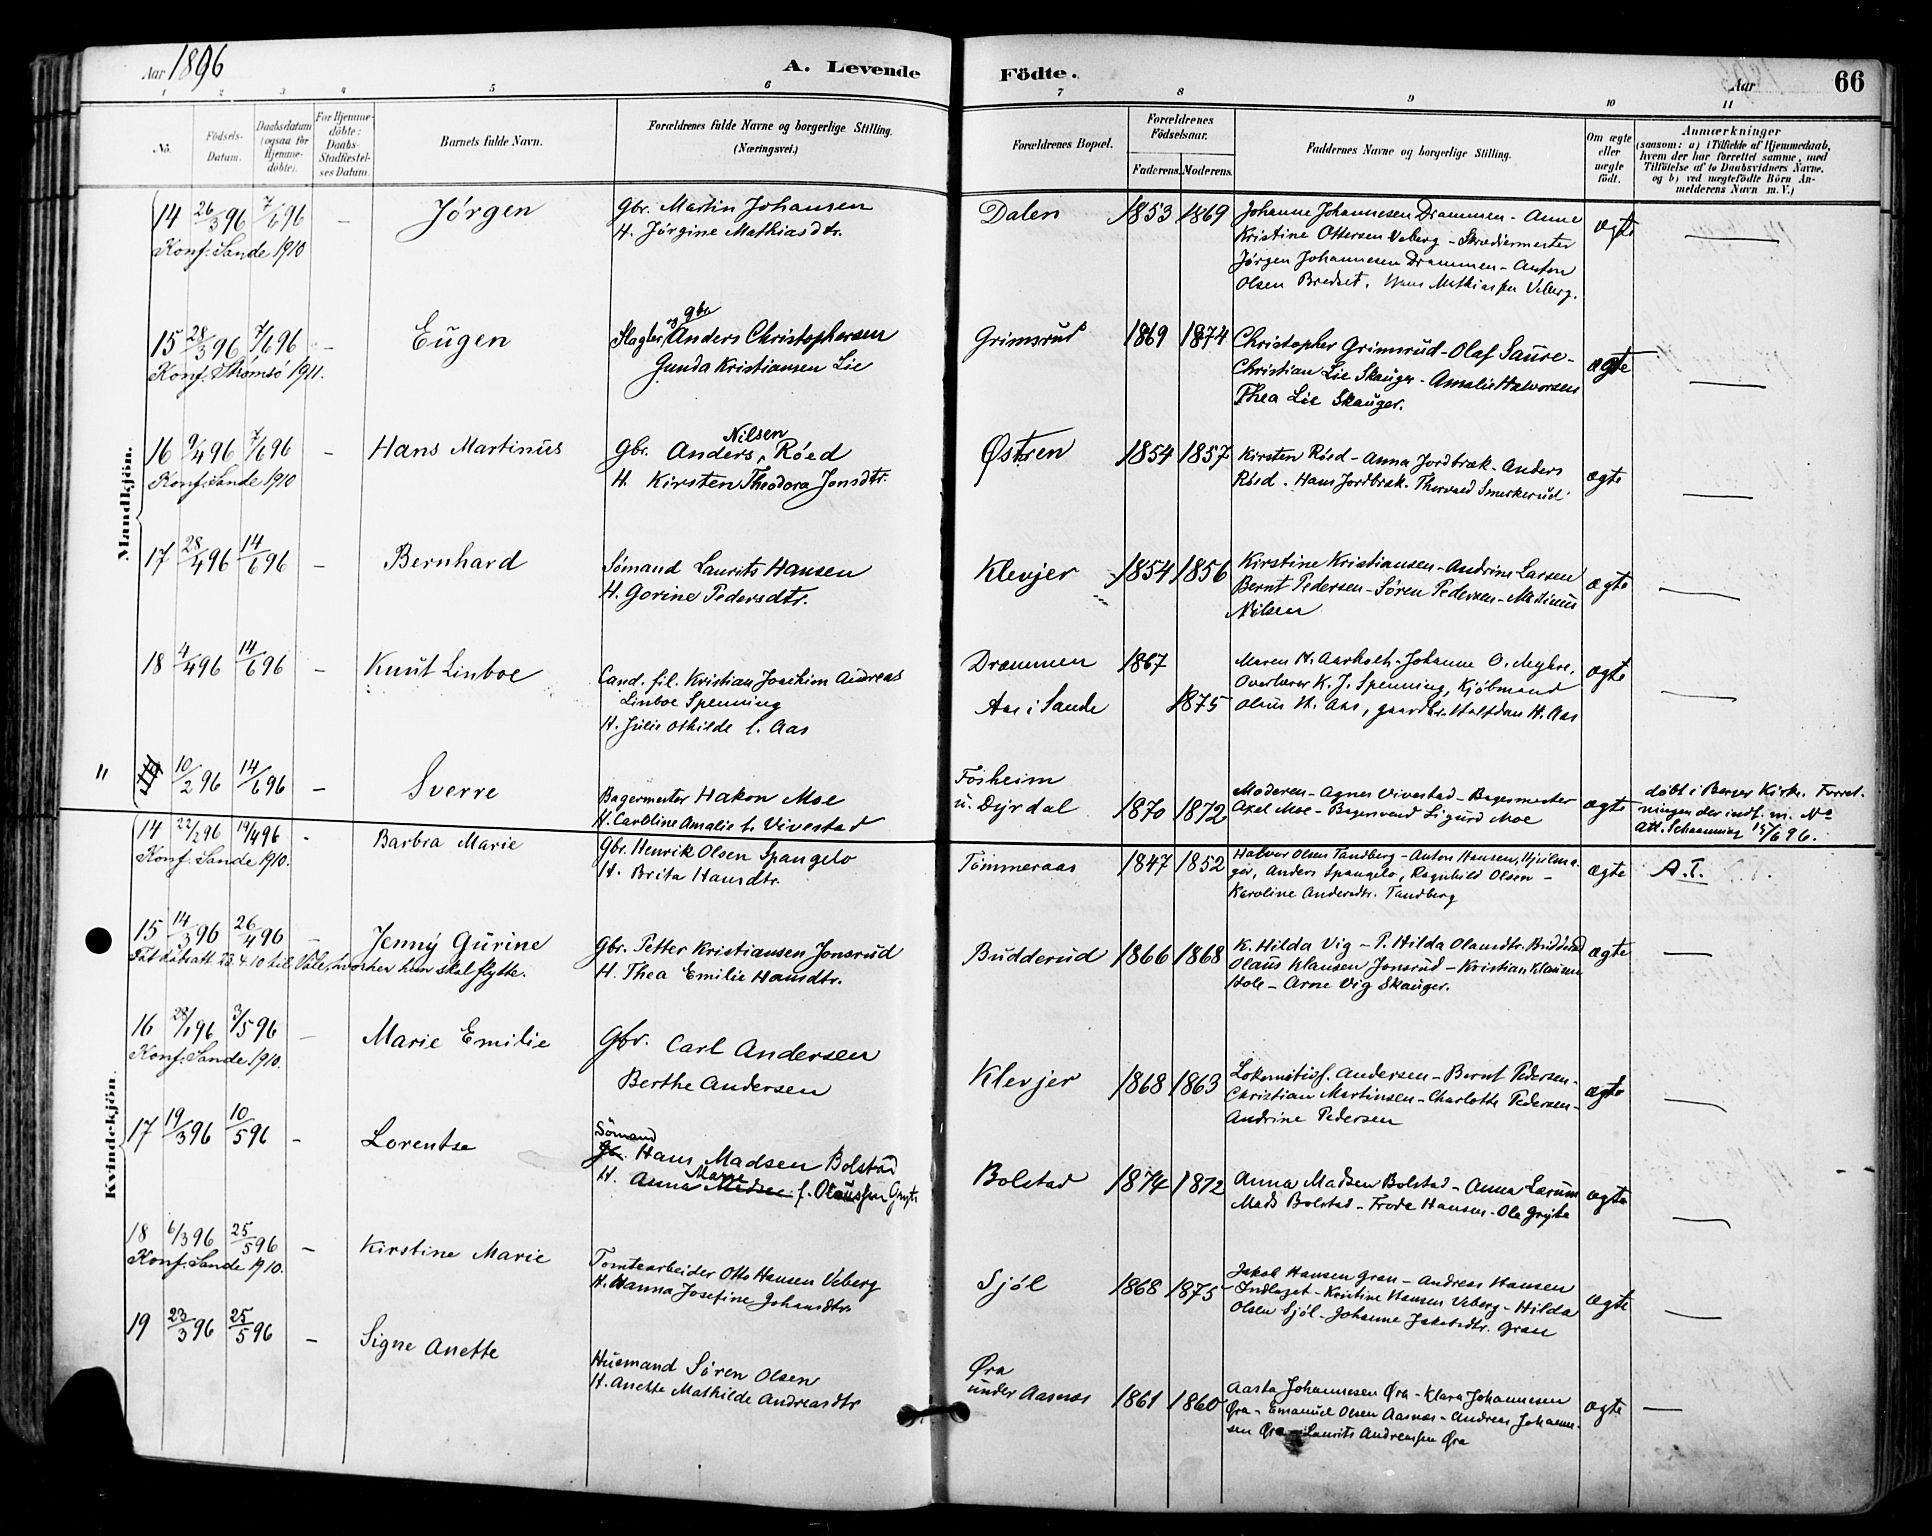 Aar 1896
A. Levende Födte.
Aar
66
1 2 3 4 5 6 7 8 9 10 11
No.
Födsels-Datum.
Daabsdatum (ogsaa for Hjemme-döbte).
For Hjemme-döbte: Daabs-Stadfæstel-ses Datum.
Barnets fulde Navn.
Forældrenes fulde Navne og borgerlige Stilling. (Næringsvei.)
Forældrenes Bopæl.
Forældrenes Födselsaar.
Faderens. Moderens.
Faddernes Navne og borgerlige Stilling.
Om ægte eller uægte födt.
Anmærkninger
(saasom: a) i Tilfælde af Hjemmedaab, hvem der har forrettet samme, med Tilföielse af to Daabsvidners Navne, og b) ved uægtefödte Börn An-melderens Navn m. V.)
Mandkjön.
14 26/3 96 7/6 96 – Jørgen
Gbr. Martin Johansen
H. Jörgine Mathiasdtr.
Dalen 1853 1869
Johanne Johannesen Drammen - Anne
Kristine Ottersen Veberg - Skrædermester
Jørgen Johannesen Drammen - Anton
Olsen Bredset. Hans Mathiassen Veberg.
ægte
Konf. Sande 1910
15 28/3 96 7/6 96 – Eugen
Slagter og gbr Anders Christophersen
Gunda Kristiansen Lie
Grimsrud 1869 1874
Christopher Grimsrud - Olaf Saure -
Christian Lie Skauger - Amalie Halvorsen
Thea Lie Skauger.
ægte
Konf. Strömsö 1911.
16 9/4 96 7/6 96 – Hans Martinus
Gbr. Anders Nilsen Röed
H. Kirsten Theodora Jonsdtr.
Østren 1854 1857
Kirsten Röed - Anna Jordbræk - Anders
Röed. Hans Jordbræk. Thorvald Smerkerud
ægte
Konf. Sande 1910
17 28/4 96 14/6 96 – Bernhard
Sømand Laurits Hansen
H. Gorine Pedersdtr.
Klevjer 1854 1856
Kirstine Kristiansen - Andrine Larsen
Bernt Pedersen - Søren Pedersen - Matinus
Nilsen
ægte
18 4/4 96 14/6 96 – Knut Linboe
Cand. fil. Kristian Joachim Andreas
Linboe Spenning
H. Julie Othilde f. Aas
Drammen 1867
Aas i Sande 1875
Maren H. Aarholt - Johanne O. Myhre,
Overlærer K. J. Spenning, Kjöbmand
Olaus H. Aas, gaardbr. Halfdan H. Aas
ægte
" 10/2 96 14/6 96 – Sverre
Bagermester Hakon Moe
H. Caroline Amalie f. Vivestad
Fosheim
u. Dyrdal 1870 1872
Moderen - Agnes Vivestad - Bagermester
Axel Moe - Bagersvend Sigurd Moe
ægte
döbt i Berger Kirke. Forret-
ningen der indf. m. No
Att. Schaanning 15/6 96.
Kvindekjön.
14 22/2 96 19/4 96 - Barbra Marie
Gbr. Henrik Olsen Spangelo
H. Brita Hansdtr.
Tömmeraas 1847 1852
Halvor Olsen Tandberg - Anton Hansen,
Anders Spangelo, Ragnhild Olsen -
Karoline Andersdtr. Tandberg
ægte A.T.
Konf. Sande 1910.
15 14/3 96 26/4 96 Jenny Gurine
Gbr. Petter Kristiansen Jonsrud
H. Thea Emilie Hansdtr.
Budderud 1866 1868
K. Hilda Vig - P. Hilda Olausdtr. Budderud
Olaus Klausen Jonsrud - Kristian Klausen
Hole - Arne Vig Skauger.
ægte
Fåt dåbsatt. 23.4.10 til Våle, hvorhen hun skal flytte.
16 28/1 96 3/5 96 – Marie Emilie
Gbr. Carl Andersen
Berthe Andersen
Klevjer 1868 1863
Lokomotivf. Andersen - Bernt Pedersen -
Christian Martinsen - Charlotte Pedersen -
Andrine Pedersen
ægte
Konf. Sande 1910.
17 19/3 96 10/5 96 – Lorentse
Sömand Hans Madsen Bolstad
H. Anna Marie f. Olaussen Gryte
Bolstad 1874 1872
Anna Madsen Bolstad - Anna Lærum
Mads Bolstad - Frode Hansen - Ole Gryte
ægte
18 6/3 96 25/5 96 – Kirstine Marie
Tomtearbeider Otto Hansen Veberg
H. Hanna Josefine Johansdtr
Sjöl 1868 1875
Jakob Hansen Gran - Andreas Hansen
Indlaget - Kristine Hansen Veberg - Hilda
Olsen Sjöl - Johanne Jakobsdtr. Gran
ægte
Konf. Sande 1910.
19 23/3 96 25/5 96 – Signe Anette
Husmand Sören Olsen
H. Anette Mathilde Andreasdtr
Øra
under Aasnæs 1861 1860
Aasta Johannesen Øra - Klara Johannesen
Øra - Emanuel Olsen Aasnæs - Andreas Johanne-
sen Øra - Laurits Andreassen Øra
ægte